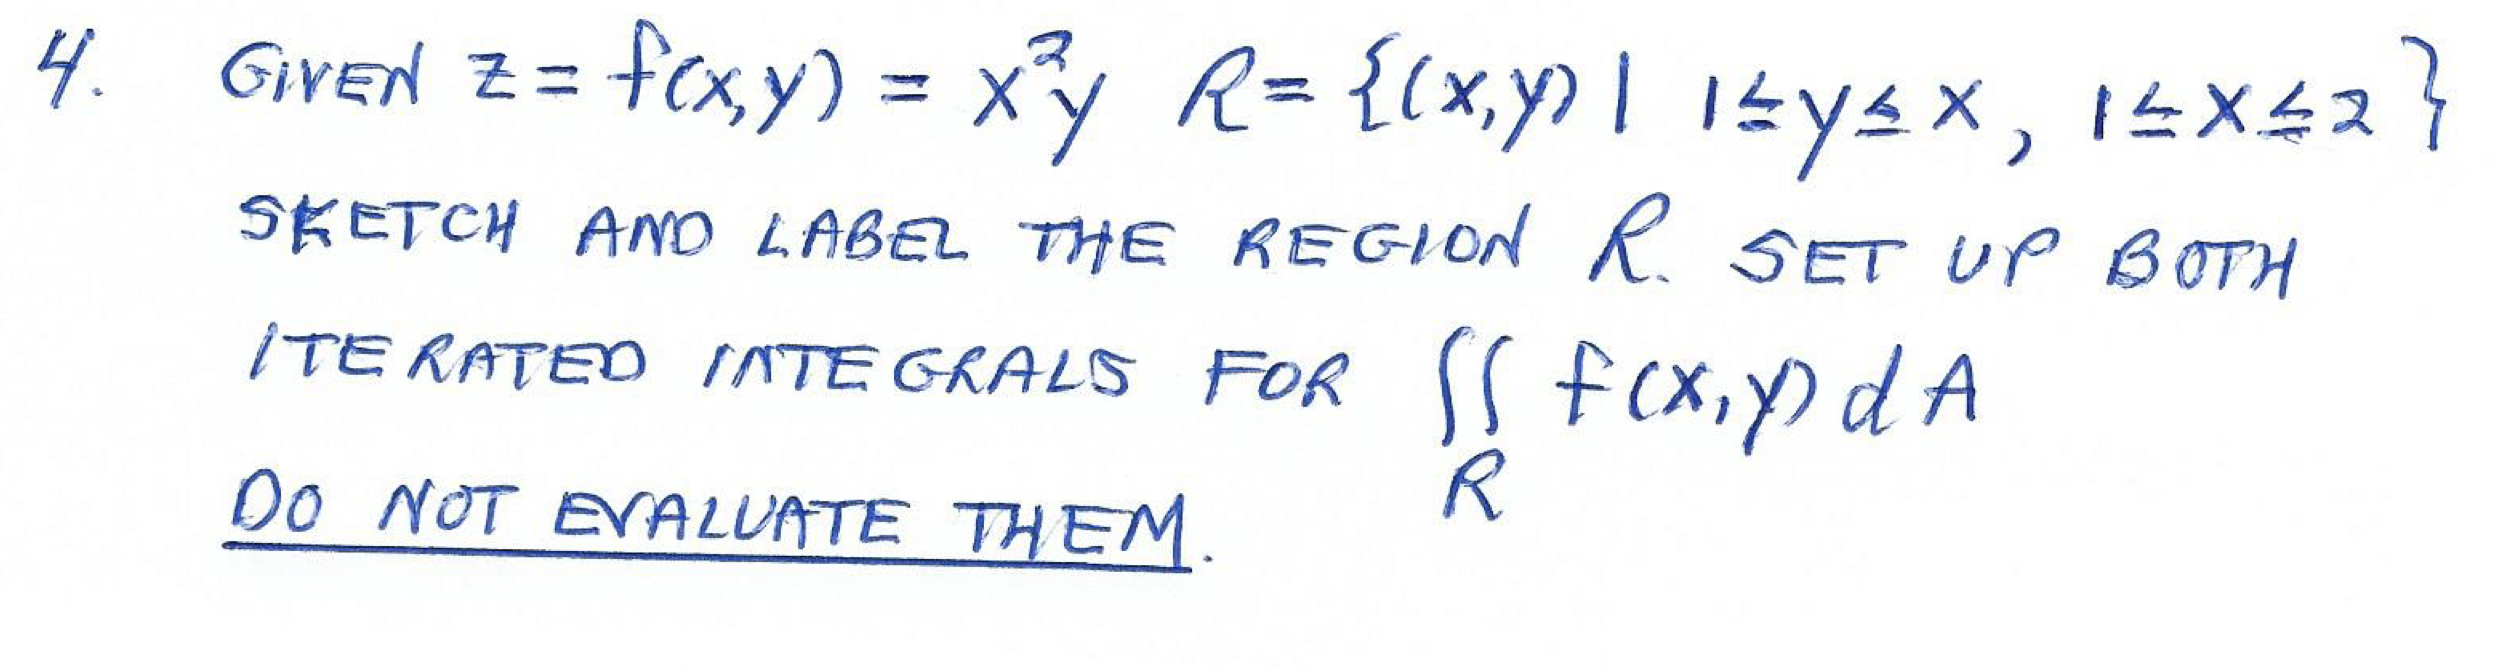 4. GIVEN z = f(x,y) = x²y R = {(x,y) | 1 ≤ y ≤ x, 1 ≤ x ≤ 2}
SKETCH AND LABEL THE REGION R. SET UP BOTH
ITERATED INTEGRALS FOR ∬ f(x,y) dA
R
DO NOT EVALUATE THEM.